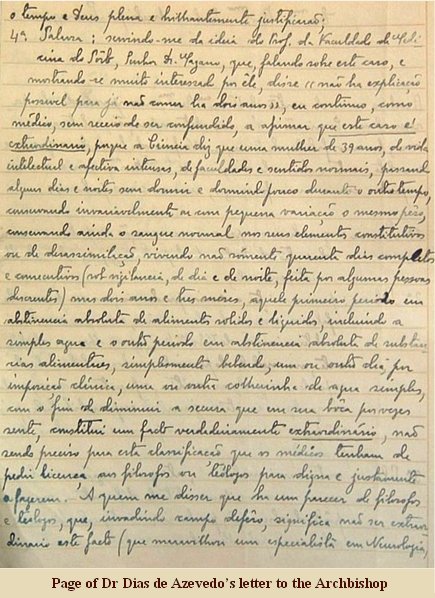 o tempo e Deus plena e brilhantemente justificarão;
4ª Palavra: servindo-me da ideia do Prof. da Faculdade de Medi-
cina do Porto, Senhor Dr. Pazano, que, falando sobre este caso, e
mostrando-se muito interessado por êle, disse "não ha explicação
possivel para já não comer ha dois anos", eu continuo, como
médico, sem receio de ser confundido, a afirmar que este caso é
extraordinário, porque a Ciencia diz que uma mulher de 39 anos, de vida
intelectual e afectiva intensas, de faculdades e sentidos normais, passando
alguns dias e noites sem dormir e dormindo pouco durante o outro tempo,
conservando invariavelmente ou com pequena variação o mesmo pêso,
conservando ainda o sangue normal nos seus elementos constitutivos
ou de desassimilação, vivendo não sòmente quarenta dias completos
e consecutivos (sob vigilancia, de dia e de noite, feita por algumas pessoas
descrentes) mas dois anos e tres mêses, àquele primeiro periodo em
abstinencia absoluta de alimentos solidos e liquidos, incluindo a
simples agua e o outro periodo em abstinencia absoluta de substan-
cias alimentares, simplesmente bebendo, um ou outro dia, por
imposição clinica, uma ou outra colherinha de agua simples,
com o fim de diminuir a secura que em sua bôca por vezes
sente, constitui um facto verdadeiramente extraordinário, não
sendo preciso para esta classificação que os médicos tenham de
pedir licença aos filosofos ou teólogos para digna e justamente
a fazerem. A quem me disser que ha um parecer de filosofos
e teólogos, que, invadindo campo defêso, significa não ser extraor-
dinario este facto (que maravilhou um especialista em Neurologia,
Page of Dr Dias de Azevedo's letter to the Archbishop